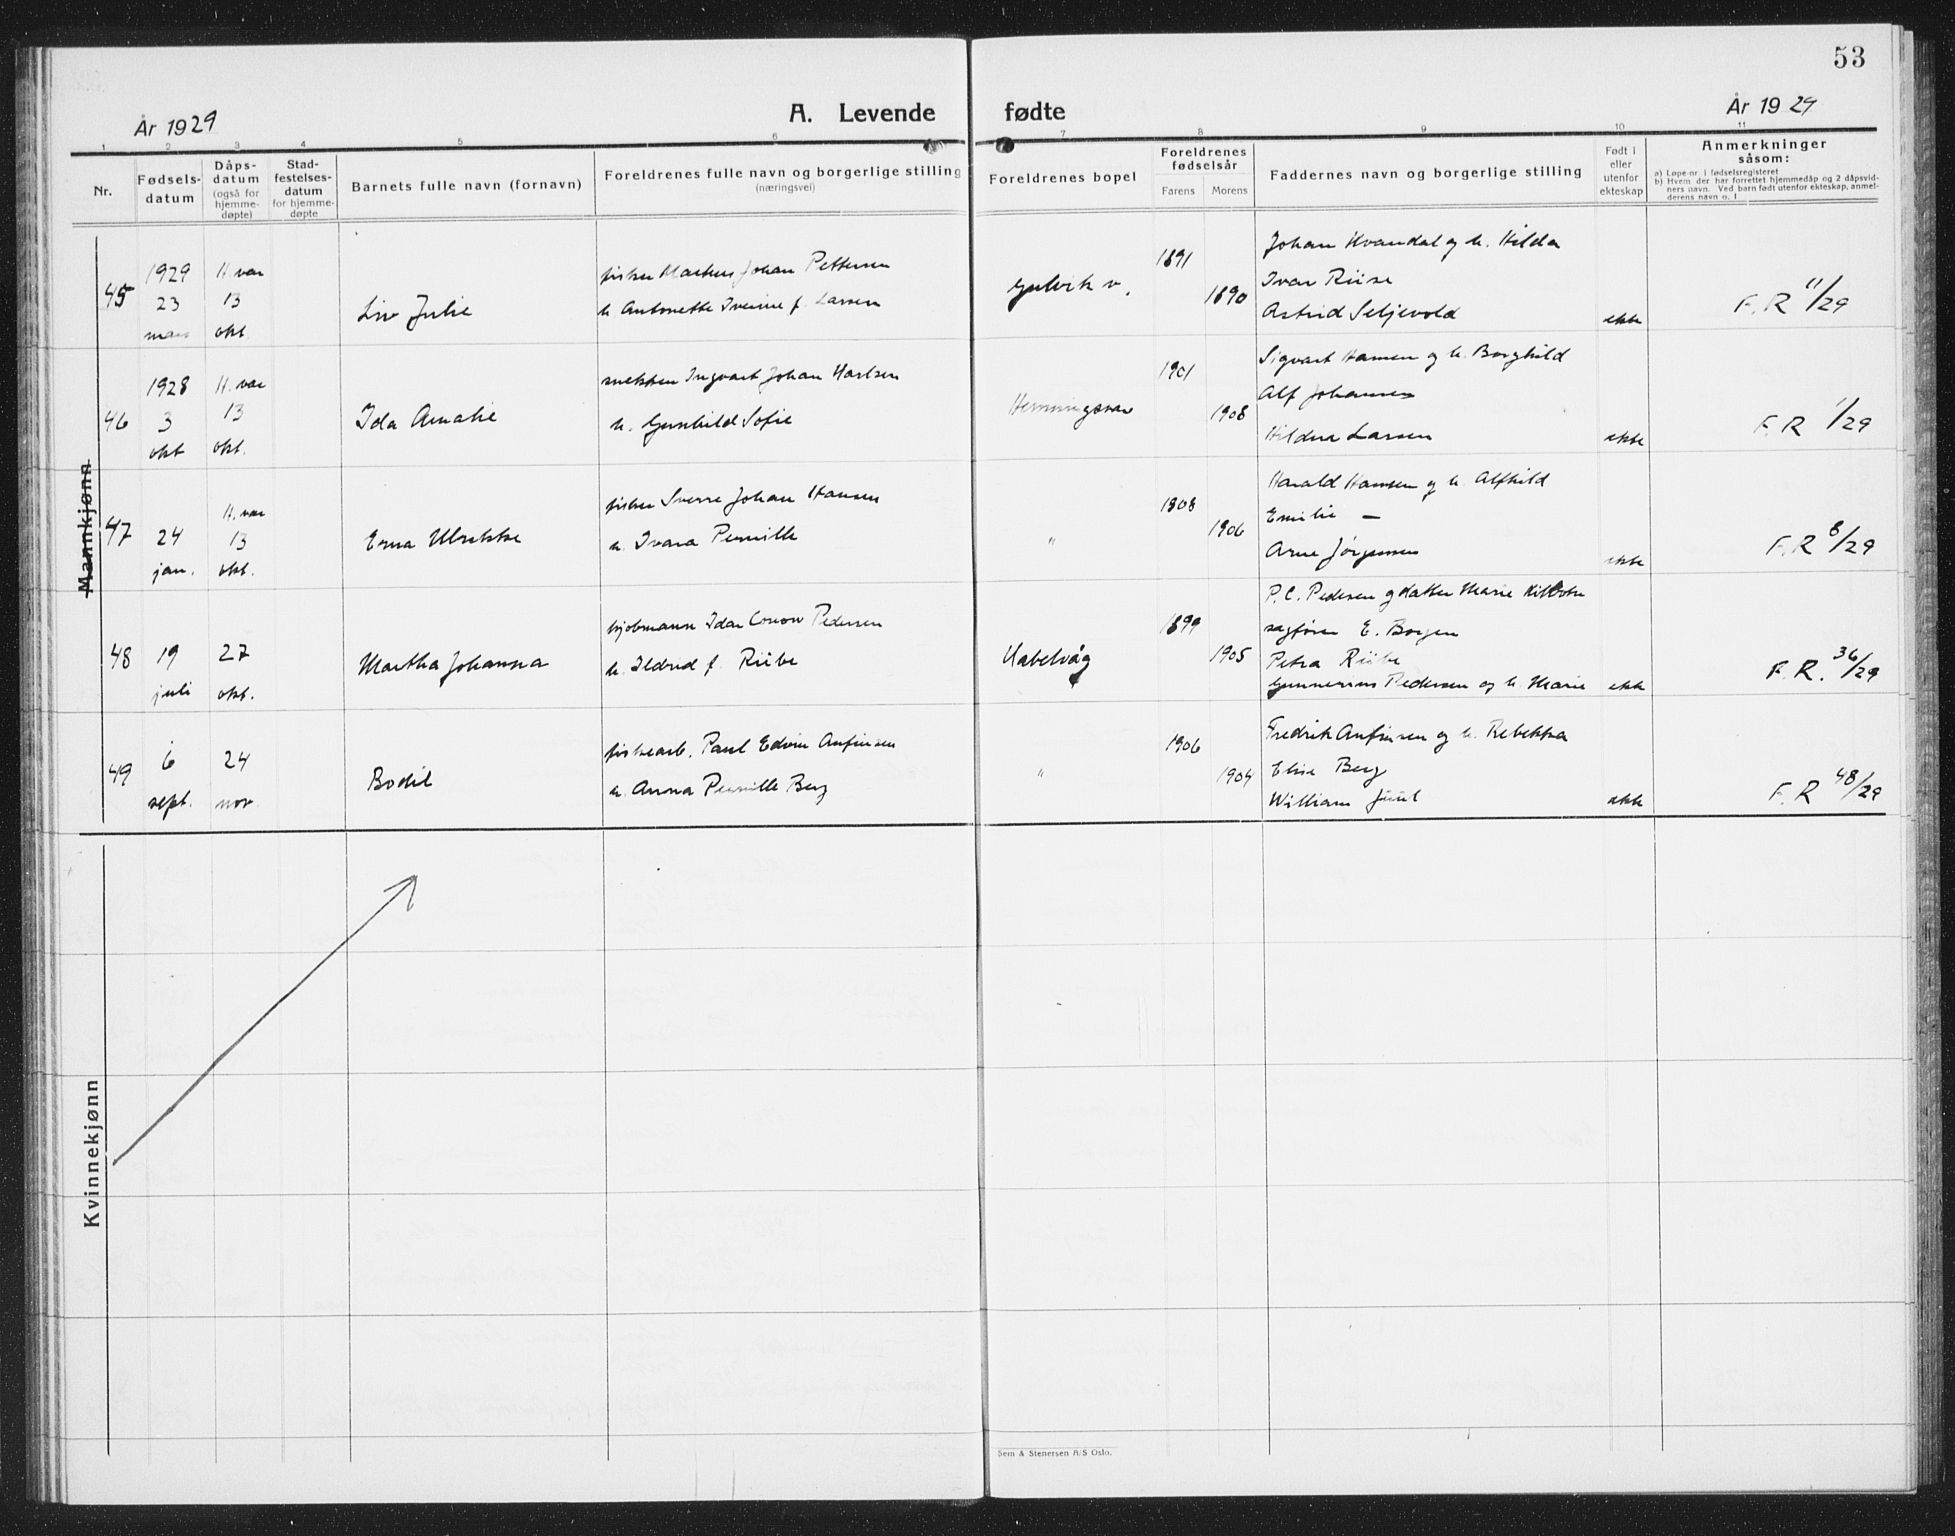 53
År 1929
A. Levende fødte
År 1929
1 2 3 4 5 6 7 8 9 10 11
Nr.
Fødselsdatum
Dåpsdatum (også for hjemmedøpte)
Stadfestelsesdatum for hjemmedøpte
Barnets fulle navn (fornavn)
Foreldrenes fulle navn og borgerlige stilling
(næringsvei)
Foreldrenes bopel
Foreldrenes fødselsår
Farens Morens
Faddernes navn og borgerlige stilling
Født i eller utenfor ekteskap
Anmerkninger
såsom:
a) Løpe-nr. i fødselsregisteret
b) Hvem der har forrettet hjemmedåp og 2 dåpsvidners navn. Ved barn født utenfor ekteskap, anmelderens navn o. l
Mannkjønn
45
1929
23
mars
H. var
13
okt.
Liv Julie
fisker Markus Johan Pettersen
h. Antonette Iverine f. Larsen
Gulvik v.
1891
1890
Johan Hvandal og h. Hilda
Ivar Riise
Astrid Seljevold
ekte
F.R 11/29
46
1928
3
okt
H. var
13
okt.
Ida Amalie
snekker Ingvart Johan Karlsen
h. Gunhild Sofie
Henningsvær
1901
1908
Sigvart Hansen og h. Borghild
Alf Johansen
Hildur Larsen
ekte
F.R 1/29
47
24
jan.
H. var
13
okt.
Erna Ulrikke
fisker Sverre Johan Hansen
h. Ivara Pernille
"
1908
1906
Harald Hansen og h. Alfhild
Emilie —
Arne Jørgensen
ekte
F.R 8/29
48
19
juli
27
okt.
Martha Johanna
kjøbmann Idar Conow Pedersen
h. Ildrid f. Riibe
Kabelvåg
1899
1905
P.C. Pedersen og datter Marie
sagfører E. Borgen
Petra Riibe
Gunnerius Pedersen og h. Marie
ekte
F.R. 36/29
49
6
sept.
24
nov.
Bodil
fiskearb. Paul Edvin Anfinsen
h. Anna Pernille Berg
"
1906
1904
Fredrik Anfinsen og h. Rebekka
Elise Berg
William Juul
ekte
F.R 48/29
Kvinnekjønn
Sem & Stenersen A/S Oslo.